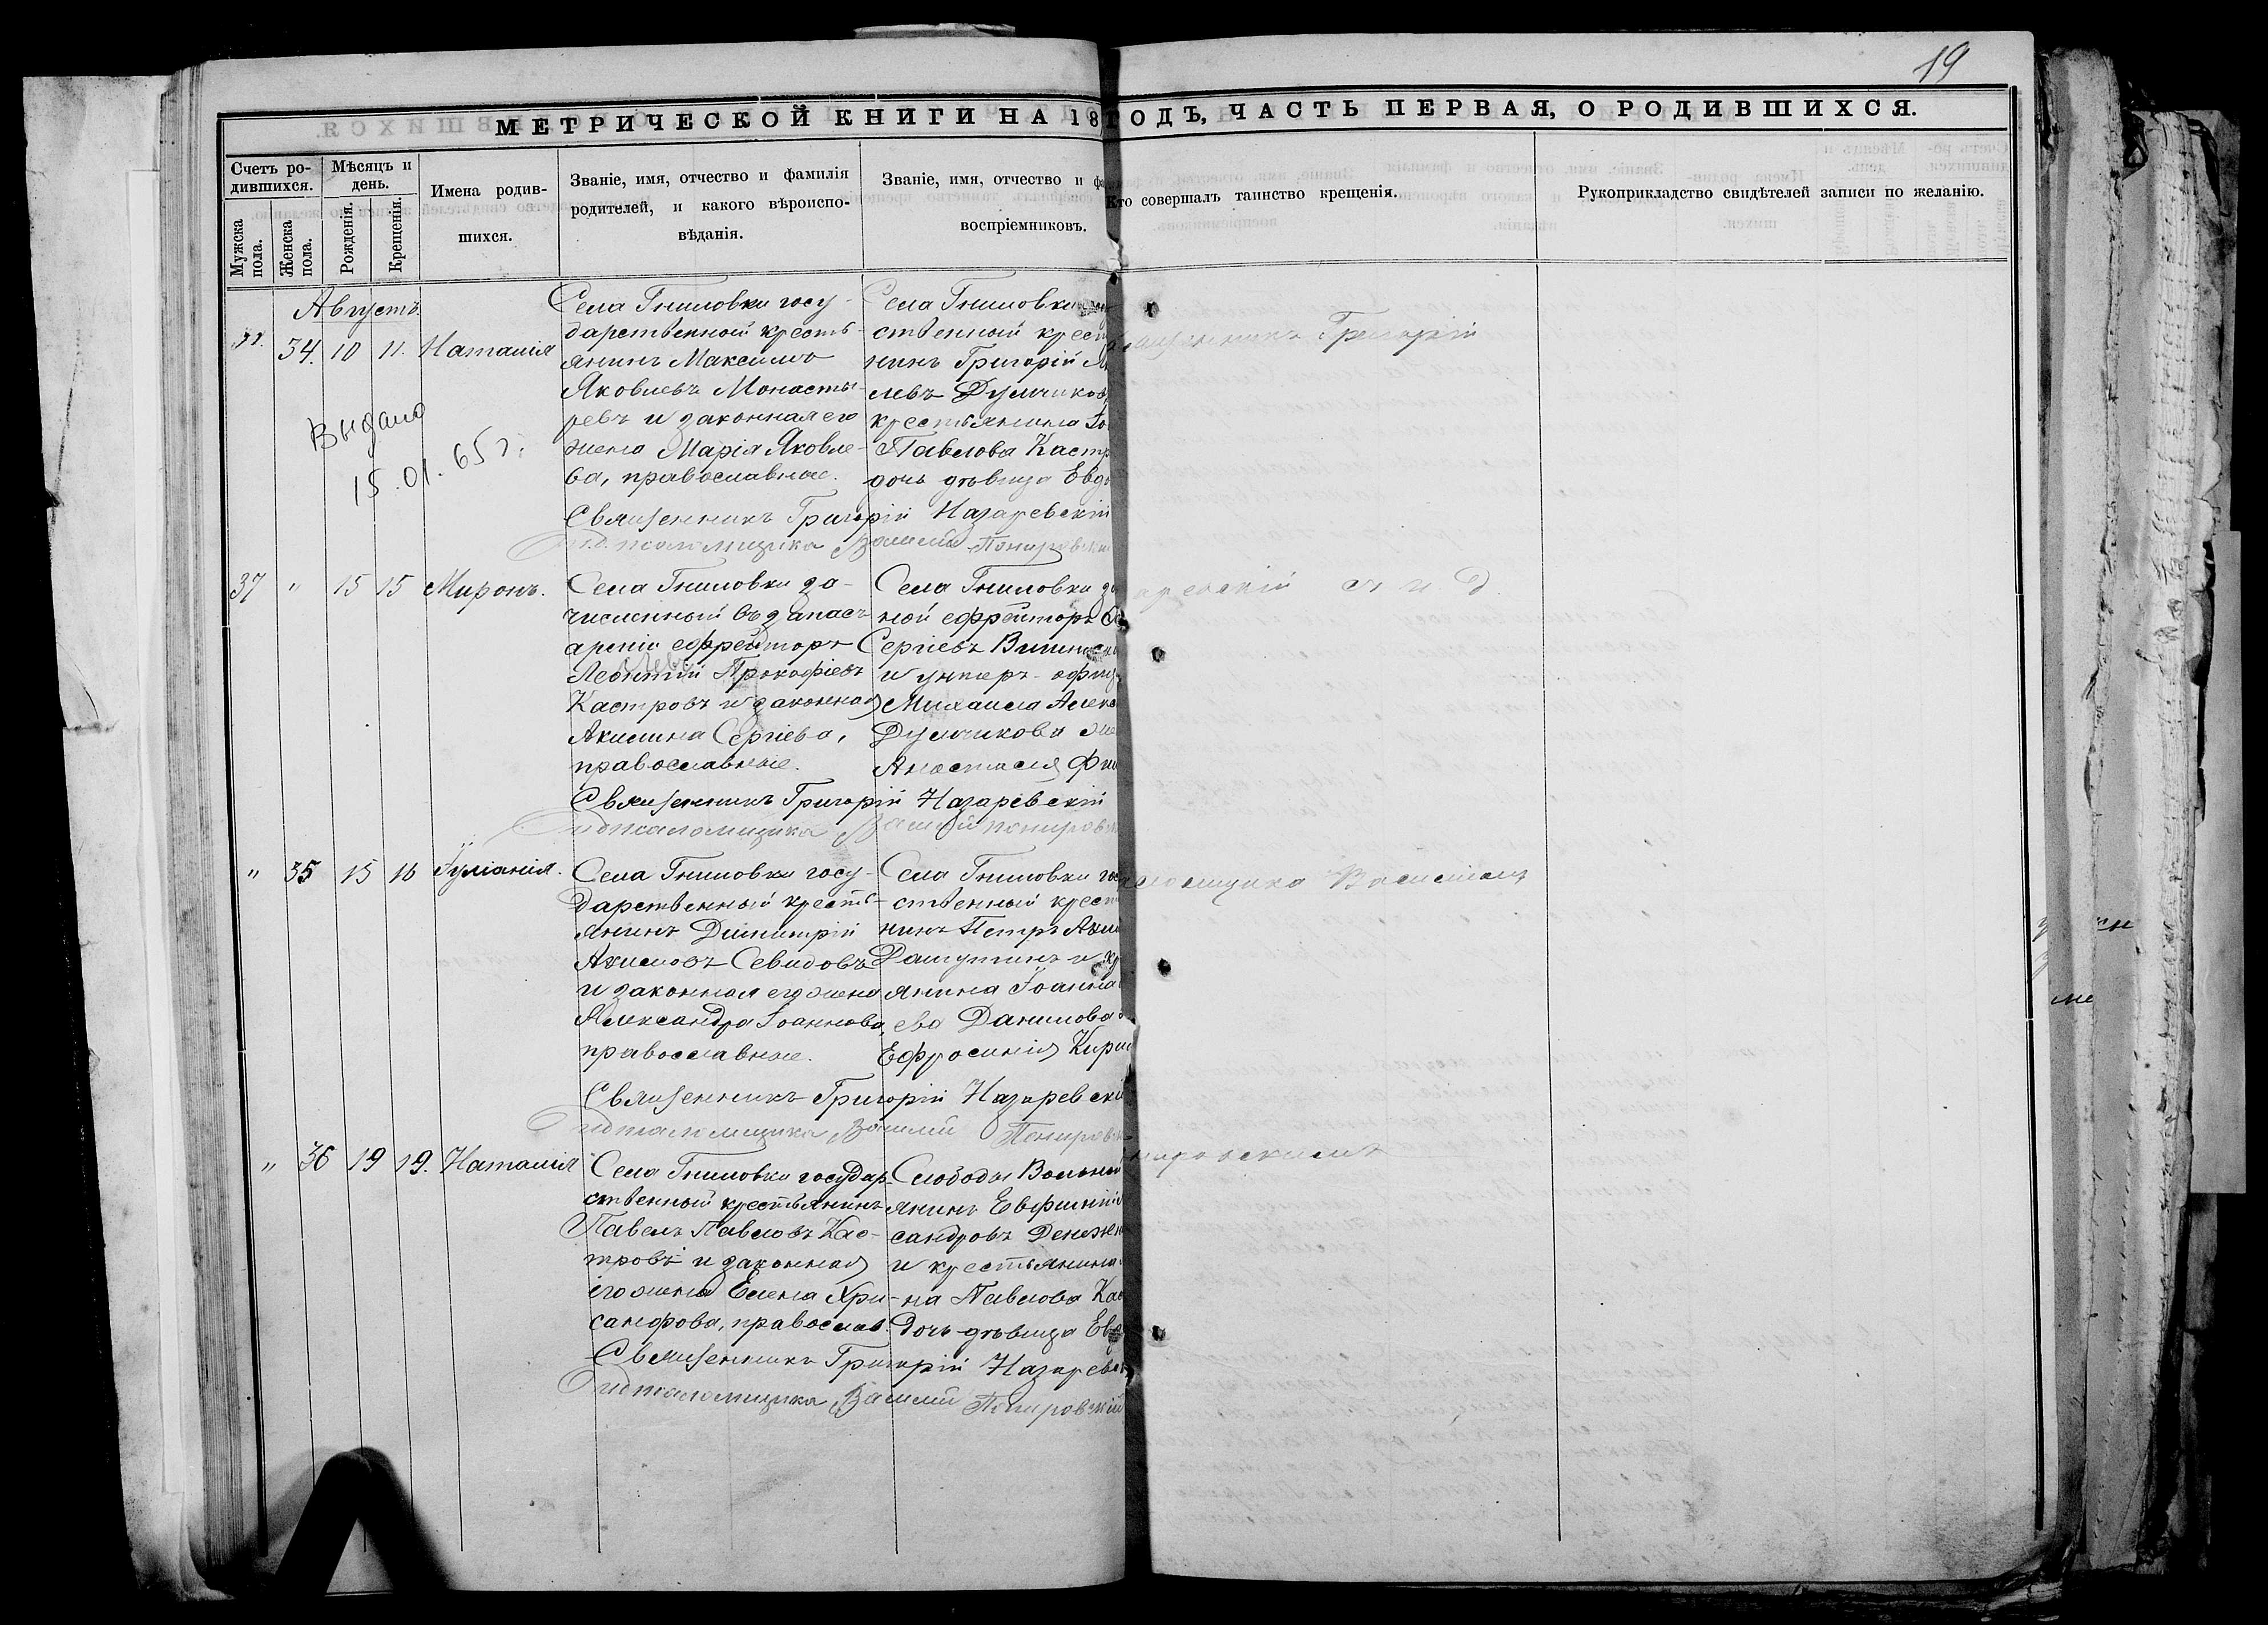 19
МЕТРИЧЕСКОЙ КНИГИ НА 18 ГОДЪ, ЧАСТЬ ПЕРВАЯ, О РОДИВШИХСЯ.
Счетъ ро-
дившихся.
Мужска
пола.
Женска
пола.
Мѣсяцъ и
день.
Рожденія.
Крещенія.
Имена родив-
шихся.
Званіе, имя, отчество и фамилія
родителей, и какого вѣроиспо-
вѣданія.
Званіе, имя, отчество и
воспріемниковъ.
Кто совершалъ таинство крещенія.
Рукоприкладство свидѣтелей записи по желанію.
Августъ.
34. 10 11. Наталія
Села Гниловки госу-
дарственной кресть-
янинъ Максимъ
Яковлевъ Монасты-
ревъ и законная его
жена Марія Яковле-
ва, православные.
Села Гниловки
ственный крест
нинъ Григорій
левъ Думчиков
крестьянина
Павлова Кастр
дочь дѣвица Евд
Выдано
15.01.65 г.
Священникъ Григорій Назаревскій
псаломщика Василій Понировскій
Священникъ Григорій
37 " 15 15 Миронъ.
Села Гниловки за-
численный въ запасъ
арміи ефрейторъ
Леонтій Прокофіевъ
Кастровъ и законная
Акилина Сергіева,
православные.
Села Гниловки
ной ефрейторъ
Сергіевъ
и унтеръ-офиц
Михаила Алекс
Думчикова же
Анастасія Фи
Священникъ Григорій Назаревскій
псаломщика Василій Пониров
" 35 15 16 Іуліанія.
Села Гниловки госу-
дарственный кресть-
янинъ Димитрій
Акимовъ Севидовъ
и законная его жена
Александра Іоаннова,
православные.
Села Гниловки гос
ственный крест
нинъ Петръ Аки
и кр
янина Іоанна
ева Данилова
Ефросинія Кири
Священникъ Григорій Назаревскій
псаломщика Василій Пониров
псаломщика Василіемъ
" 36 19 19. Наталія
Села Гниловки государ-
ственный крестьянинъ
Павелъ Павловъ Кас-
тровъ и законная
его жена Елена Хри-
санфова, православ.
Слободы Вольной
янинъ Евфимій
сандровъ Денеже
и крестьянина
на Павлова Кас
дочь дѣвица Евд
Священникъ Григорій Назаревск
псаломщика Василій Понировскій